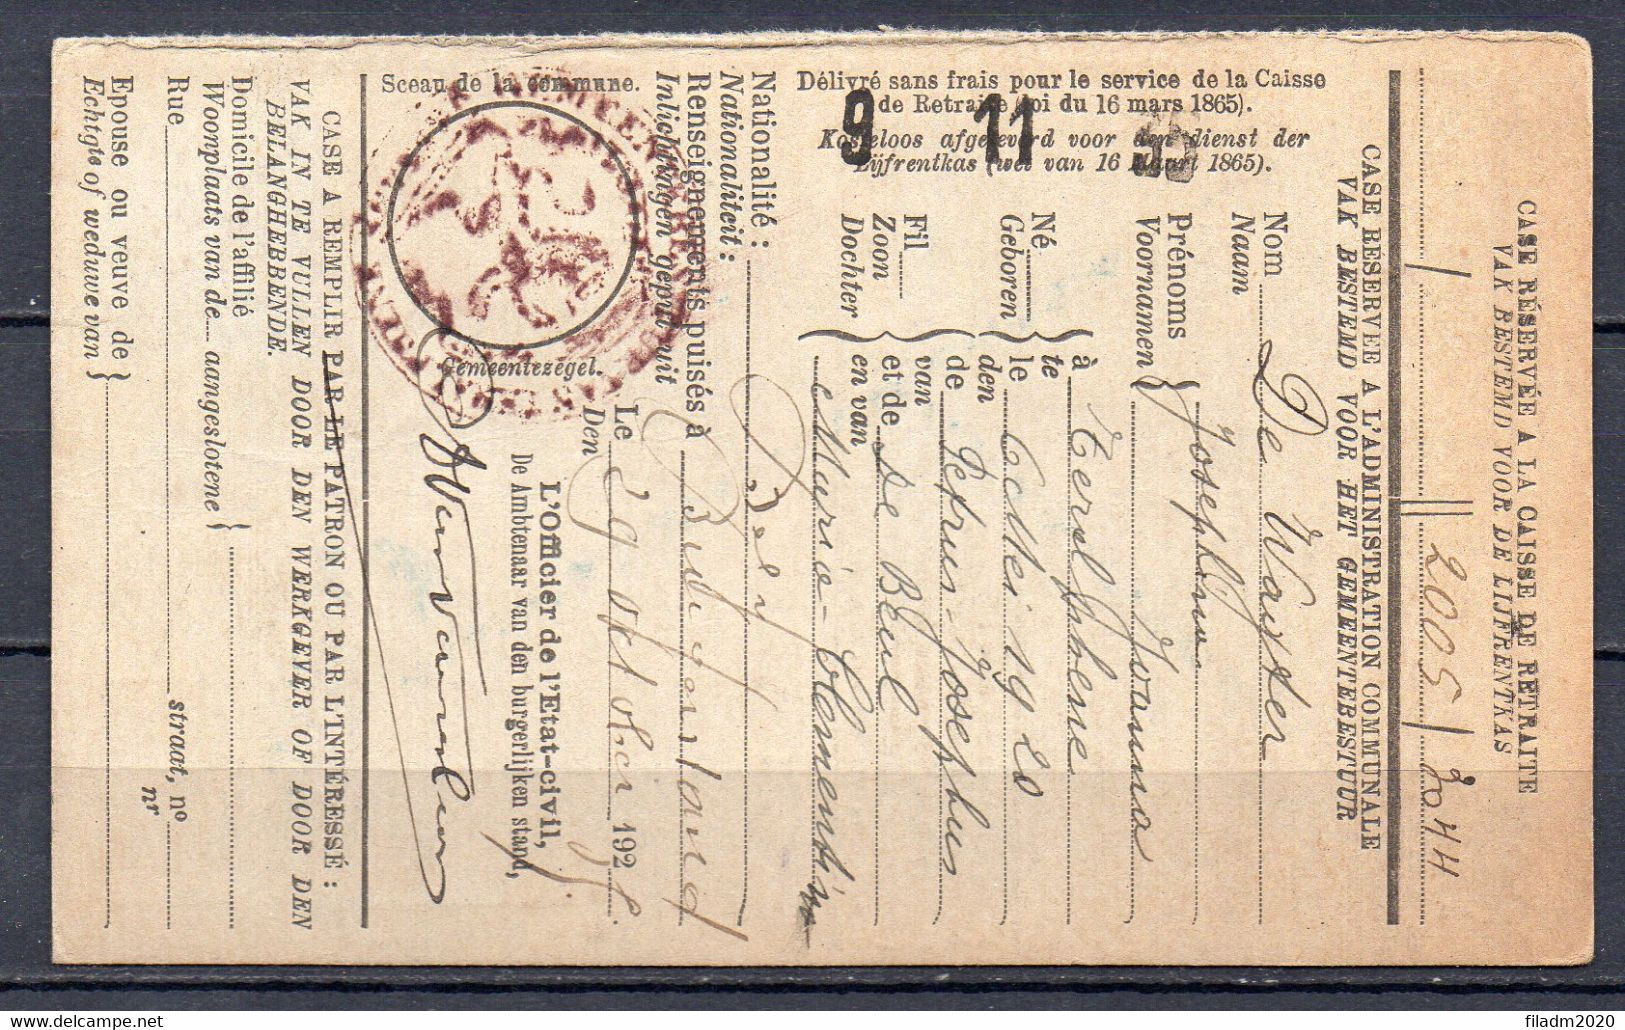 CASE RÉSERVÉE A LA CAISSE DE RETRAITE
VAK BESTEMD VOOR DE LIJFRENTKAS
1 2005 / 2044
CASE RESERVEE A L'ADMINISTRATION COMMUNALE
VAK BESTEMD VOOR HET GEMEENTEBESTUUR
Nom
Naam
De
Prénoms
Voornamen
Josephina
Joanna
Né à
Geboren te
le
den
1920
Fil de
Zoon van
Dochter
Petrus-Josephus
et de
en van
De Beul
Maria-Clementina
Nationalité :
Nationaliteit :
Renseignements puisés à
Inlichtingen geput uit
Le
Den
29 october 192
L'Officier de l'Etat-civil,
De Ambtenaar van den burgerlijken stand,
Délivré sans frais pour le service de la Caisse
de Retraite (loi du 16 mars 1865).
Kosteloos afgeleverd voor den dienst der
Lijfrentkas (wet van 16 Maart 1865).
9 11
Sceau de la commune.
Gemeentezegel.
CASE A REMPLIR PAR LE PATRON OU PAR L'INTÉRESSÉ :
VAK IN TE VULLEN DOOR DEN WERKGEVER OF DOOR DEN
BELANGHEBBENDE.
Domicile de l'affilié
Woonplaats van de aangeslotene
Rue straat, nº
nr
Epouse ou veuve de
Echtgte of weduwe van
www.delcampe.net
filadm2020